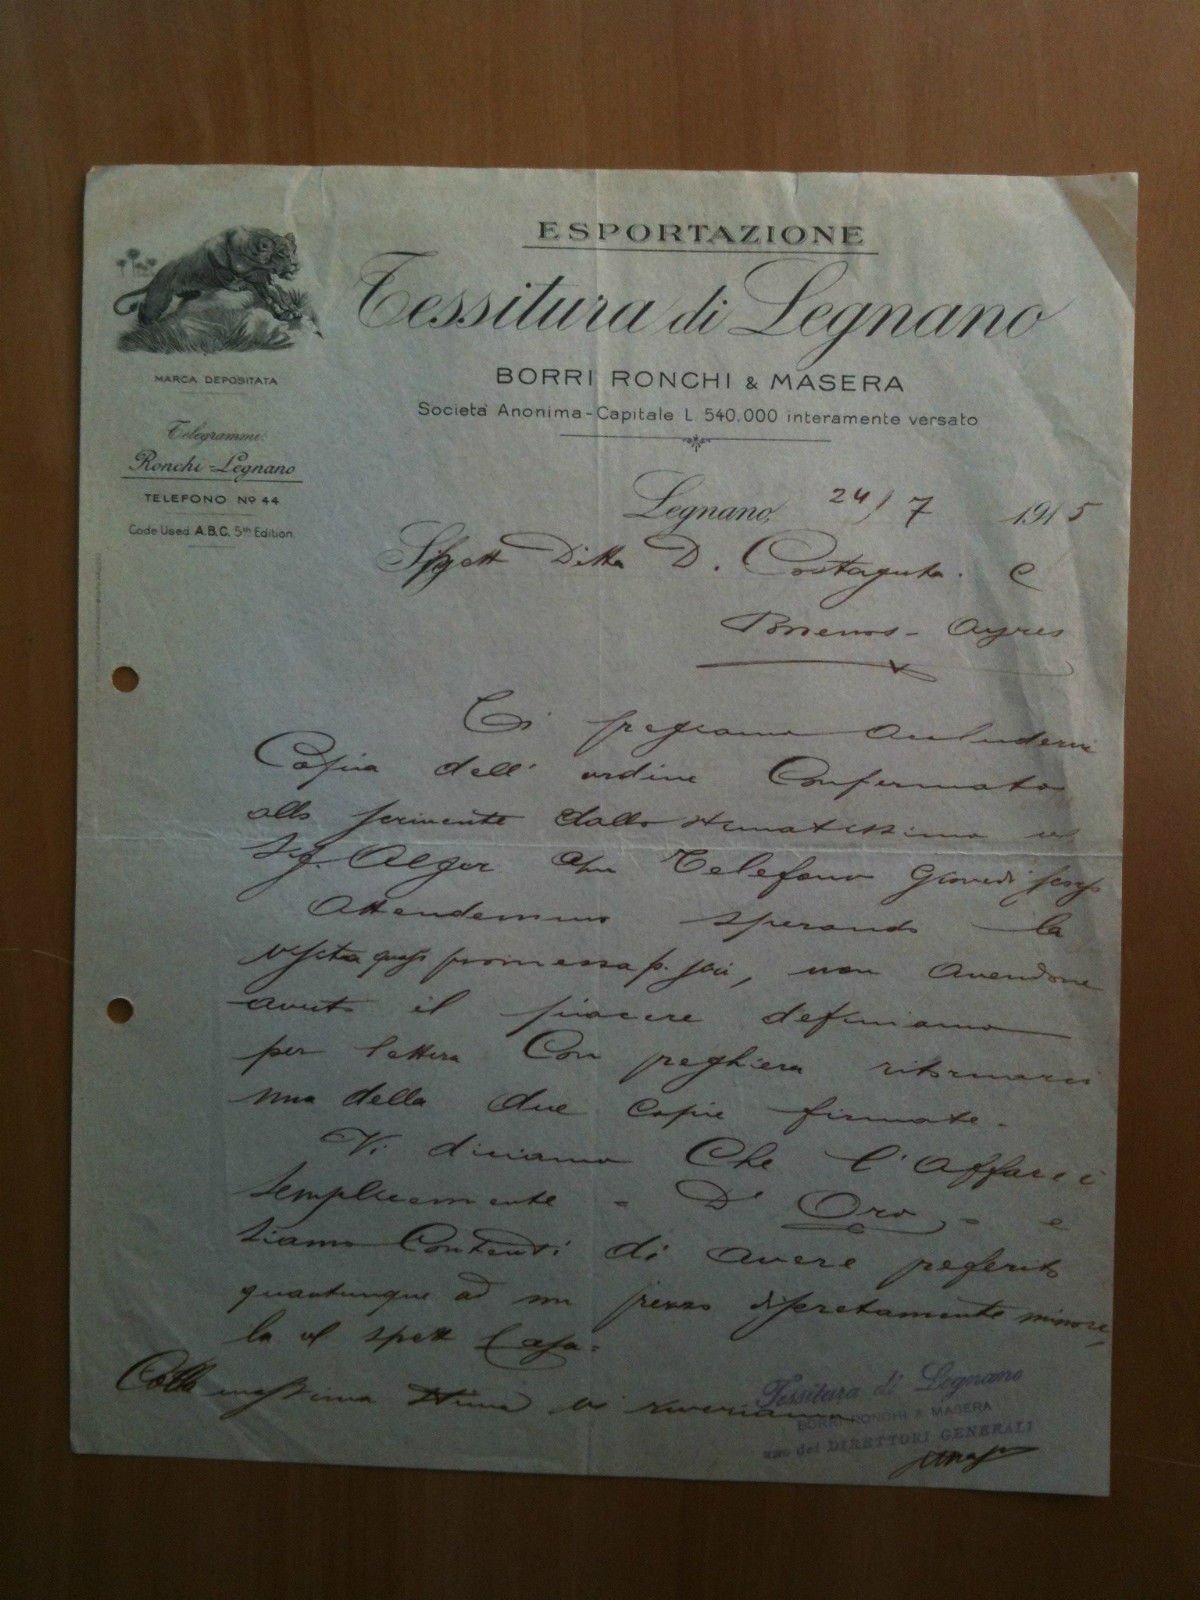 ESPORTAZIONE
Tessitura di Legnano
BORRI RONCHI & MASERA
Società Anonima - Capitale L. 540.000 interamente versato
MARCA DEPOSITATA
Telegrammi:
Ronchi - Legnano
TELEFONO No 44
Code Used A.B.C. 5th Edition.
Legnano, 24/7 1915
Spett Ditta D. Costaguta. C
Buenos - Ayres
Ci pregiamo accludervi
Copia dell' ordine Confermato
allo scrivente dallo stimatissimo
Sig. Alger per Telefono Giovedì
Attendemmo sperando la
promessa p. , non avendone
avuto il piacere definiamo
per lettera Con preghiera ritornarci
una della due copie firmate.
Vi diciamo Che l'Affare è
semplicemente - D' Oro - e
siamo Contenti di avere preferito
quantunque ad un prezzo discretamente minore,
la spett Casa.
Colla massima stima vi riveriamo
Tessitura di Legnano
BORRI RONCHI & MASERA
uno dei DIRETTORI GENERALI